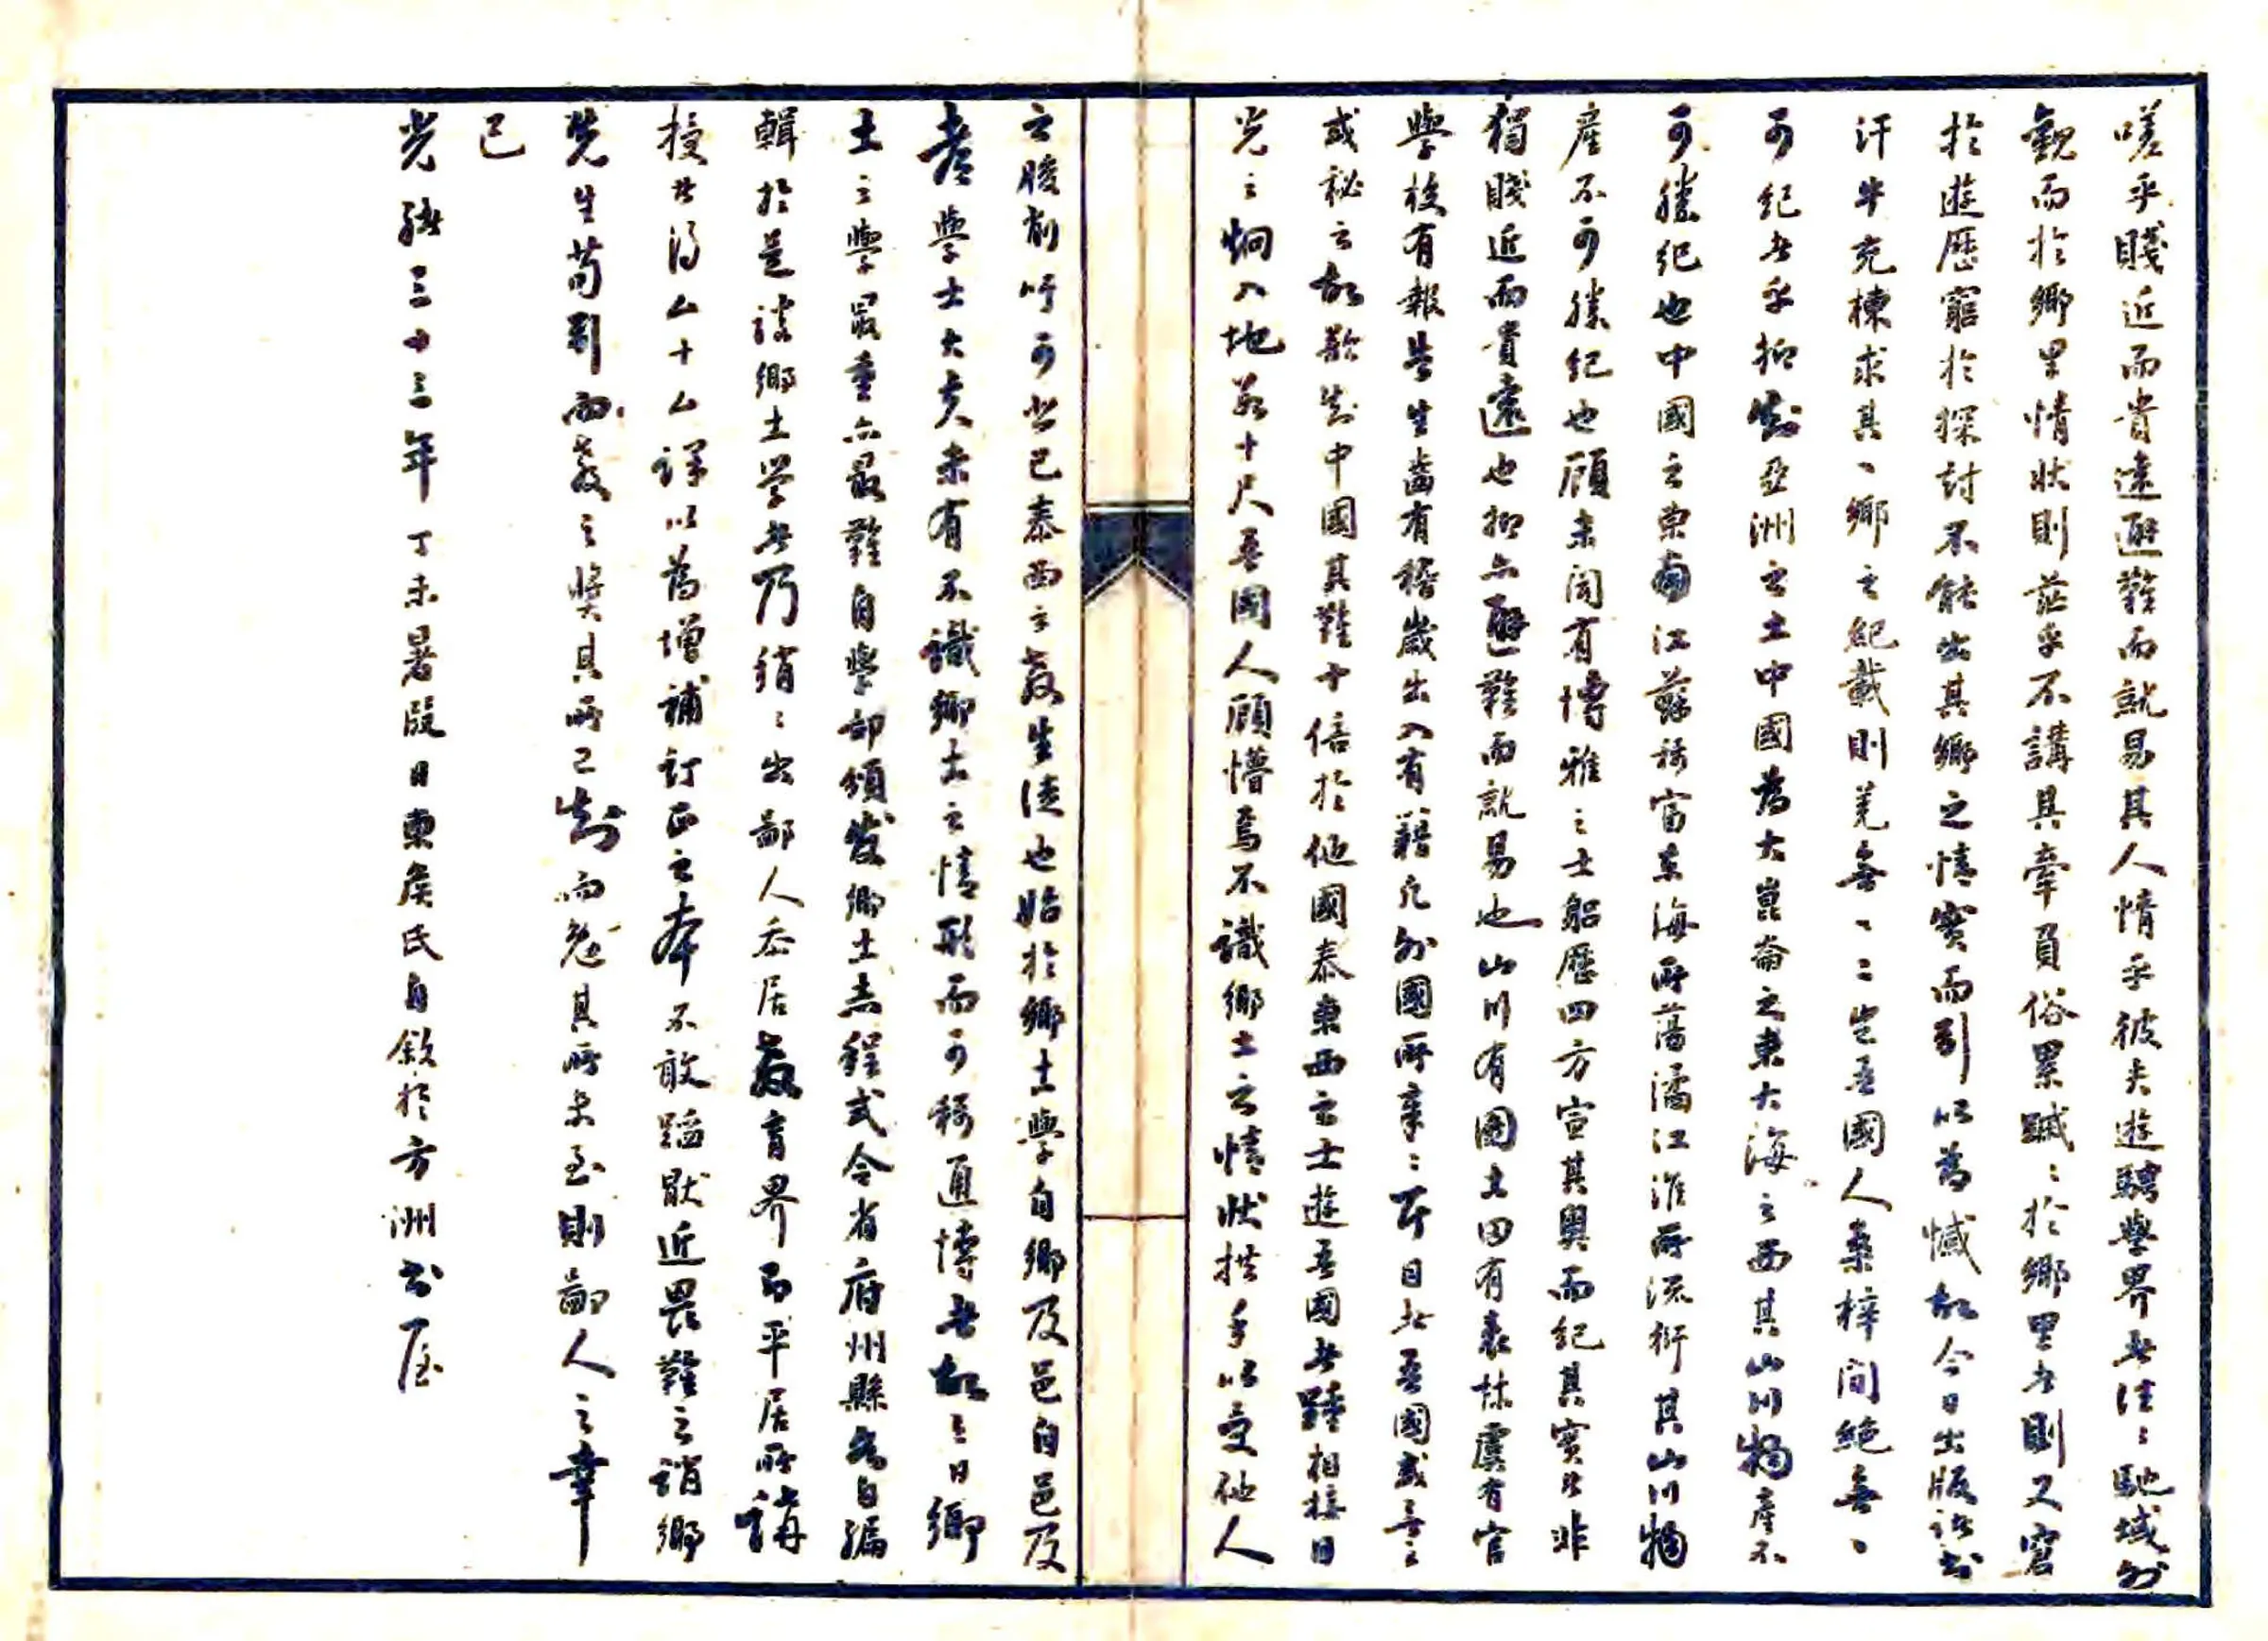 嗟乎賤近而貴遠避難而就易其人情乎彼夫遊騁學界者往〻馳域外
觀而於鄉里情狀則茫乎不講其牽員俗累踧〻於鄉里者則又窘
於遊歷窮於探討不能出其鄉之情實而引以為憾故今日出版諸書
汗牛充棟求其一鄉之紀載則羌無一二豈吾國人桑梓間絕無一
可紀者乎抑知亞洲之土中國為大崑崙之東大海之西其山川物產不
可勝紀也中國之東南江蘇稱富東海所蕩潏江淮所流衍其山川物
產不可勝紀也顧未聞有博雅之士躬歷四方宣其奧而紀其實者非
獨賤近而貴遠也抑亦避難而就易也山川有圖土田有表林虞有官
學校有報告生齒有稽歲出入有籍凡外國所事〻有日者吾國或無之
或秘之故歎知中國其難十倍於他國泰東西之士遊吾國者踵相接日
光之炯入地若十尺吾國人顧懵焉不識鄉土之情狀拱手以受他人
之朘削吁可悲已泰西之教生徒也始於鄉土學自鄉及邑自邑及
省學士大夫未有不識鄉土之情形而可稱通博者故今日鄉
土之學最重亦最難自學部頒發鄉土志程式令省府州縣各自編
輯於是談鄉土學者乃稍〻出鄙人忝居教育界即平居所講
授者得厶十厶課以為增補訂正之本不敢蹈厭近畏難之誚鄉
先生苟引而教之獎其所已知而勉其所未至則鄙人之幸
已
光緒三十三年丁未暑假日東侯氏自敘於方洲書屋